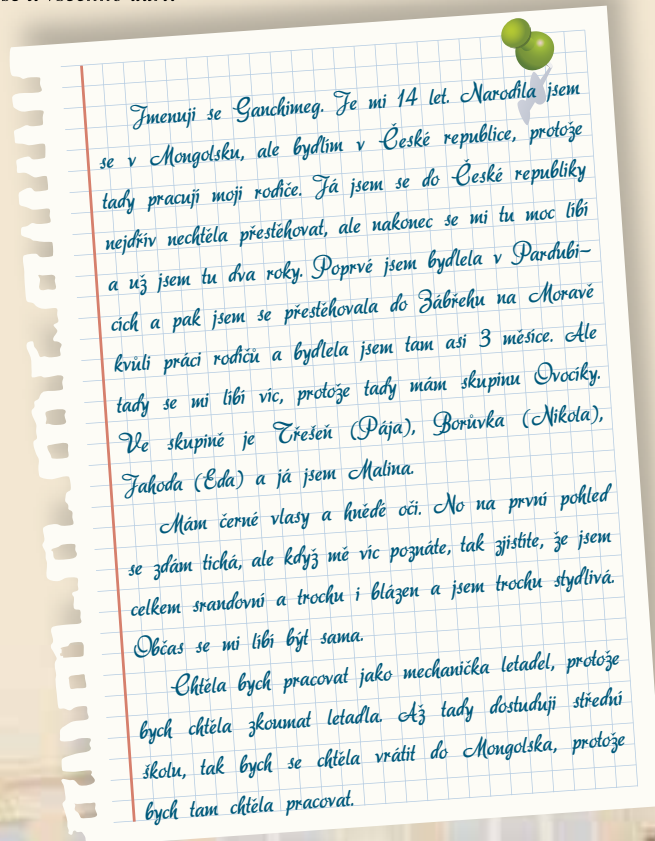 Jmenuji se Ganchimeg. Je mi 14 let. Narodila jsem
se v Mongolsku, ale bydlím v České republice, protože
tady pracují moji rodiče. Já jsem se do České republiky
nejdřív nechtěla přestěhovat, ale nakonec se mi tu moc líbí
a už jsem tu dva roky. Poprvé jsem bydlela v Pardubi-
cích a pak jsem se přestěhovala do Zábřehu na Moravě
kvůli práci rodičů a bydlela jsem tam asi 3 měsíce. Ale
tady se mi líbí víc, protože tady mám skupinu Ovocíky.
Ve skupině je Třešeň (Pája), Borůvka (Nikola),
Jahoda (Eda) a já jsem Malina.
Mám černé vlasy a hnědé oči. No na první pohled
se zdám tichá, ale když mě víc poznáte, tak zjistíte, že jsem
celkem srandovní a trochu i blázen a jsem trochu stydlivá.
Občas se mi líbí být sama.
Chtěla bych pracovat jako mechanička letadel, protože
bych chtěla zkoumat letadla. Až tady dostuduji střední
školu, tak bych se chtěla vrátit do Mongolska, protože
bych tam chtěla pracovat.